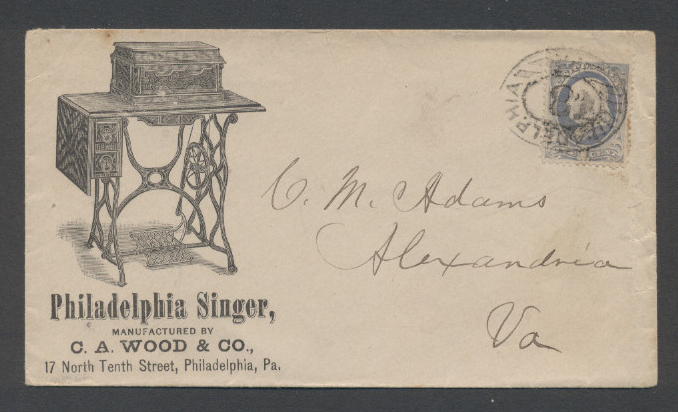 Philadelphia Singer,
MANUFACTURED BY
C. A. WOOD & CO.,
17 North Tenth Street, Philadelphia, Pa.
C. M. Adams
Alexandria
Va